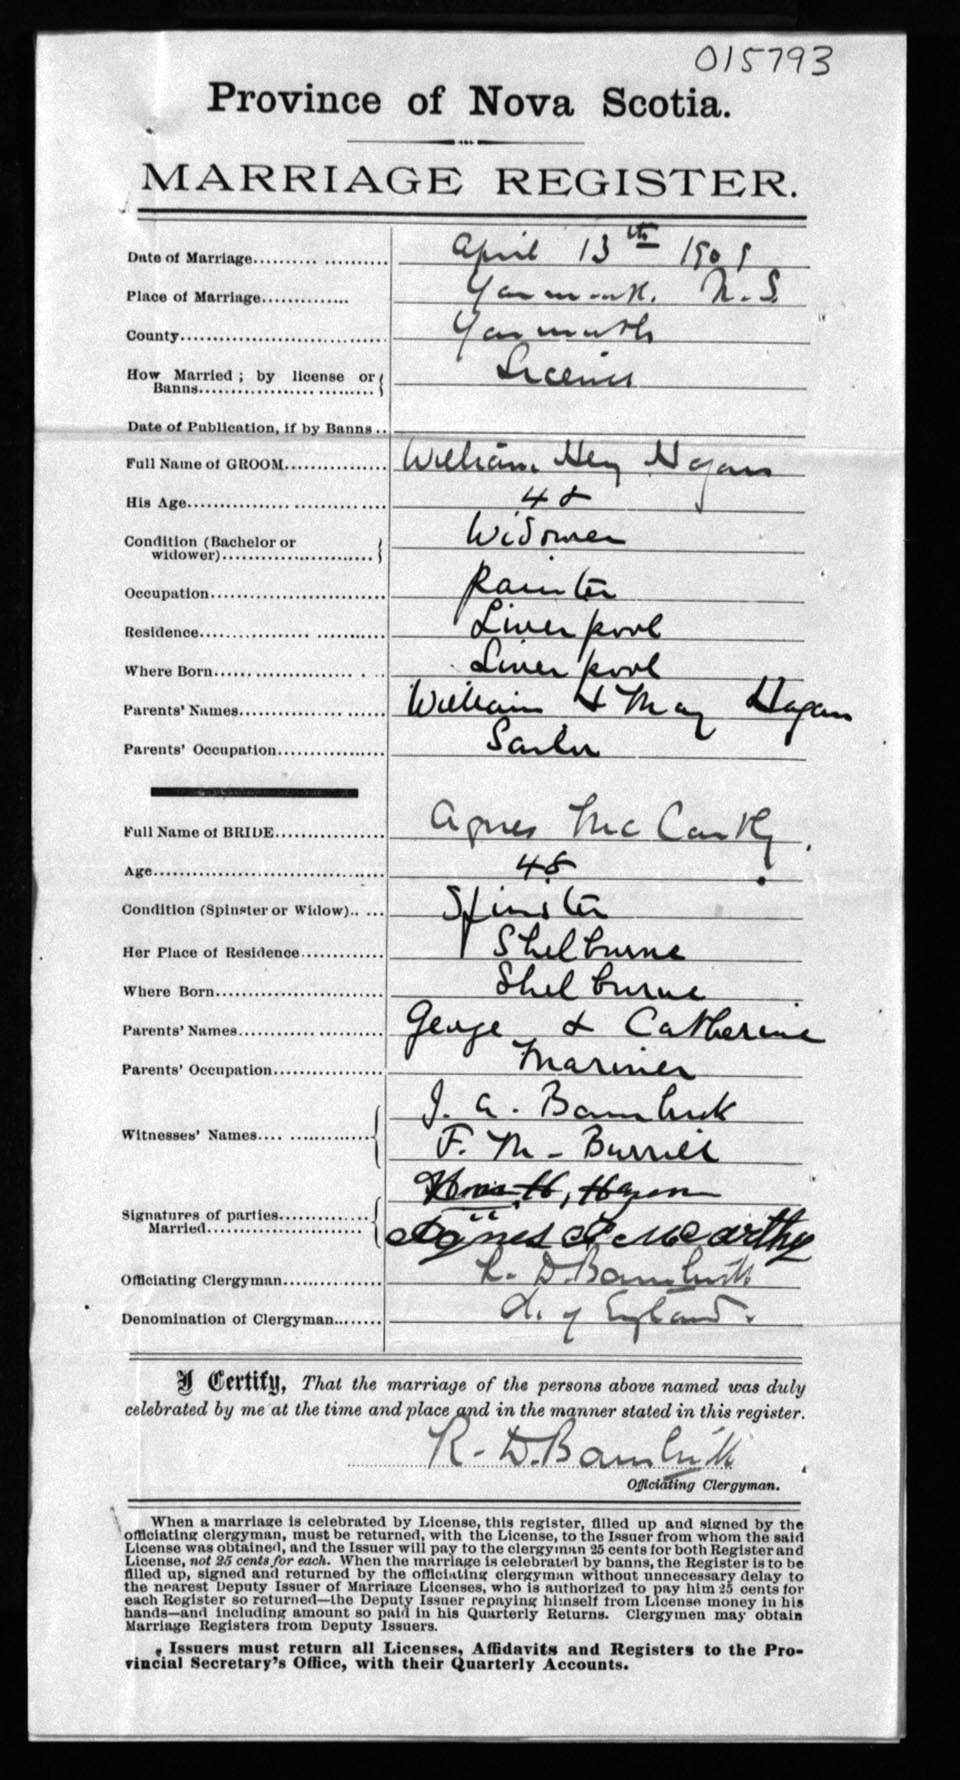 015793
Province of Nova Scotia.
MARRIAGE REGISTER.
Date of Marriage.......... ........... April 13th 1909
Place of Marriage.............. Yarmouth. N.S.
County................................... Yarmouth
How Married ; by license or License
Banns.................... .........
Date of Publication, if by Banns ..
Full Name of GROOM................. William Hy Hagan
His Age................. ............... 48
Condition (Bachelor or Widower
widower).........................
Occupation............................. Painter
Residence................. ............ Liverpool
Where Born...... ................. . .. Liverpool
Parents' Names................ ....... William & May Hagan
Parents' Occupation.................. Sailor
Full Name of BRIDE.................. Agnes McCarthy
Age....................................... 48
Condition (Spinster or Widow).. ... Spinster
Her Place of Residence.............. Shelburne
Where Born............................. Shelburne
Parents' Names................ ....... George & Catherine
Parents' Occupation.................. Mariner
J. A. Bambrick
Witnesses' Names.... ............... F. M. Burrill
H. Hagan
Signatures of parties...............
Married......................... Agnes McCarthy
Officiating Clergyman................ R. D. Bambrick
Denomination of Clergyman........ Ch. of England.
I Certify, That the marriage of the persons above named was duly
celebrated by me at the time and place and in the manner stated in this register.
R. D. Bambrick
Officiating Clergyman.
When a marriage is celebrated by License, this register, filled up and signed by the
officiating clergyman, must be returned, with the License, to the Issuer from whom the said
License was obtained, and the Issuer will pay to the clergyman 25 cents for both Register and
License, not 25 cents for each. When the marriage is celebrated by banns, the Register is to be
filled up, signed and returned by the officiating clergyman without unnecessary delay to
the nearest Deputy Issuer of Marriage Licenses, who is authorized to pay him 25 cents for
each Register so returned—the Deputy Issuer repaying himself from License money in his
hands—and including amount so paid in his Quarterly Returns. Clergymen may obtain
Marriage Registers from Deputy Issuers.
Issuers must return all Licenses, Affidavits and Registers to the Pro-
vincial Secretary's Office, with their Quarterly Accounts.